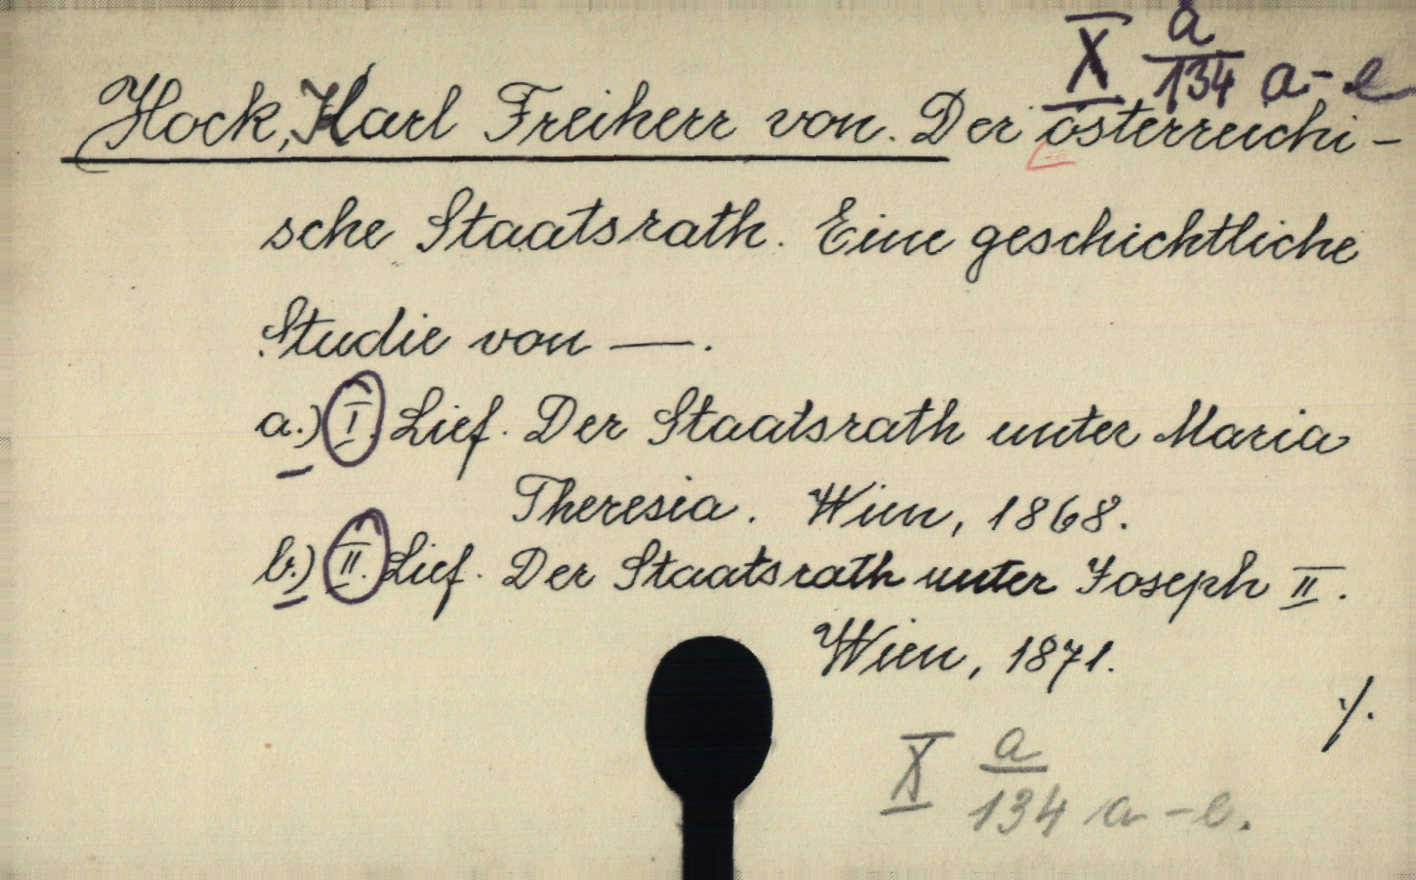 X a/134 a-e
Hock, Karl Freiherr von. Der österreichi-
sche Staatsrath. Eine geschichtliche
Studie von —.
a.) I. Lief. Der Staatsrath unter Maria
Theresia. Wien, 1868.
b.) II. Lief. Der Staatsrath unter Joseph II.
Wien, 1871.
./.
X a/134 a-e.